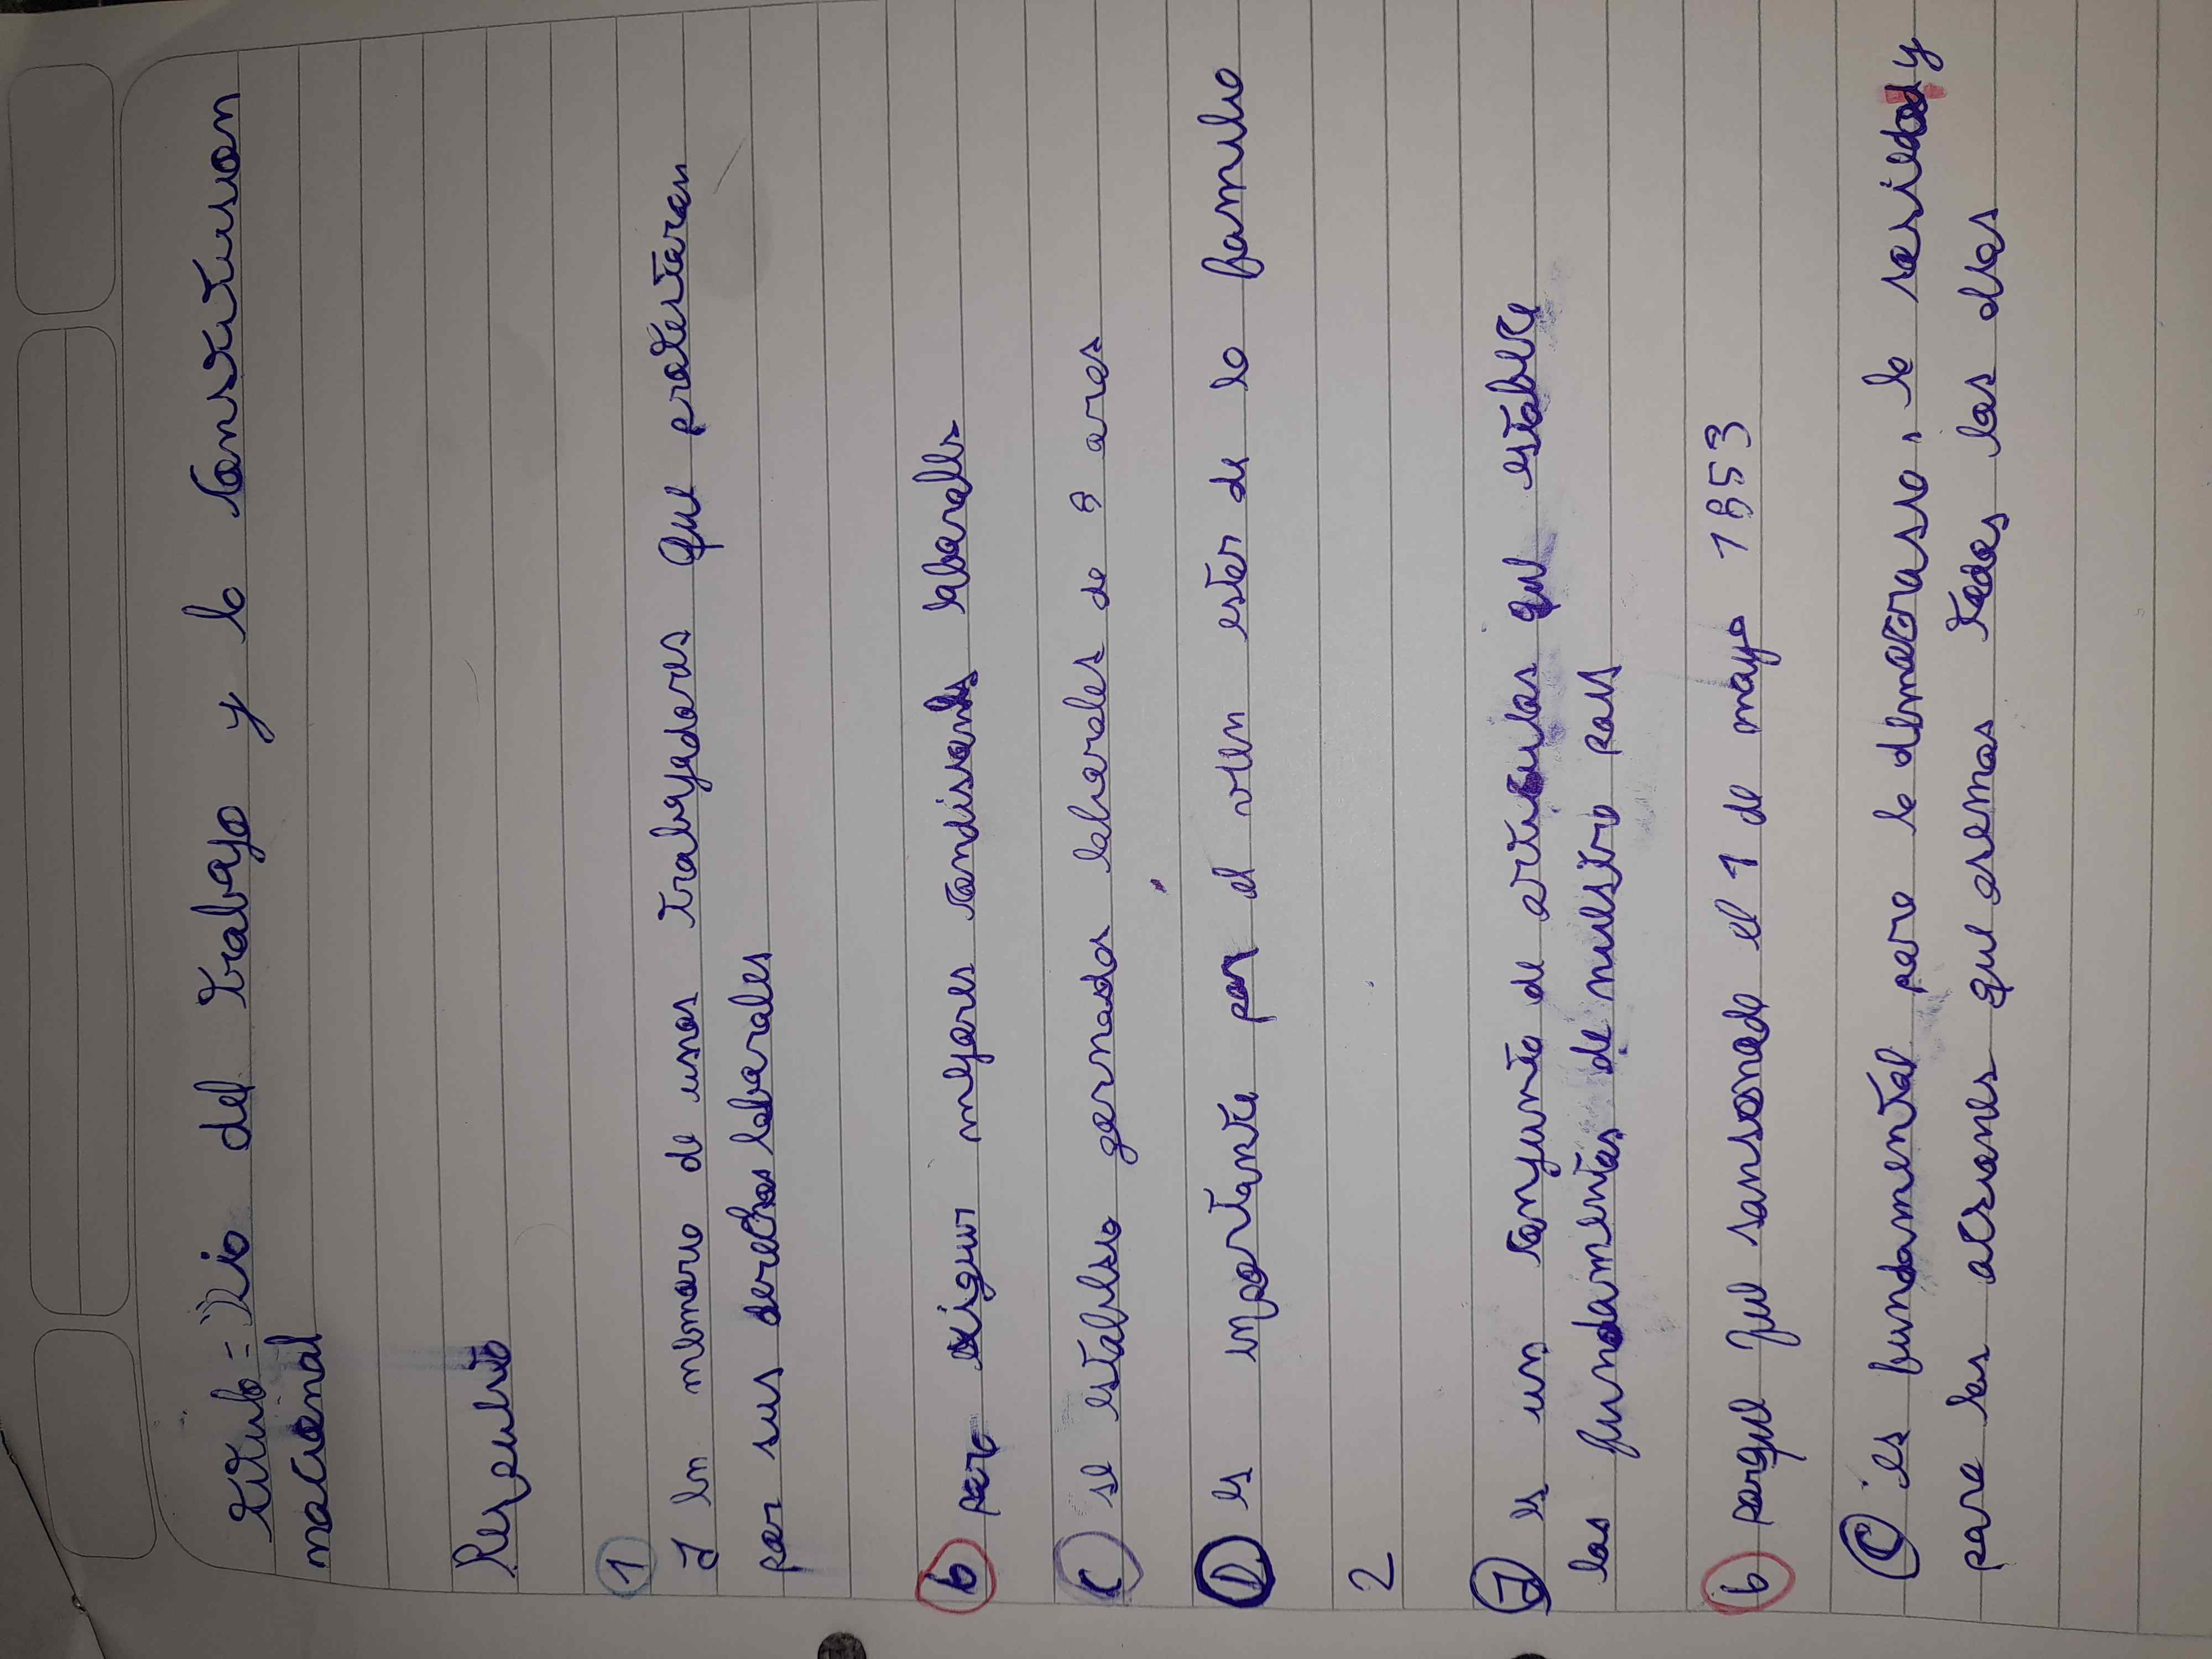 titulo = Dio del trabajo y lo constitusion
nacional
Respuesto
1
a En memorio de unos trabajadores que protestaron
por sus derechos laborales
b paro exigir mejores condisiones laborales
C se estableso jornados laborales de 8 aros
D es importante por el vien ester de lo familio
2
a es un conjunto de articulos que estable
los fundamentos de nuestro pais
b porque fue sansonado el 1 de mayo 1853
C es fundamental paro lo democraso, lo sosiedad y
para las acsiones que asemos todos los dias